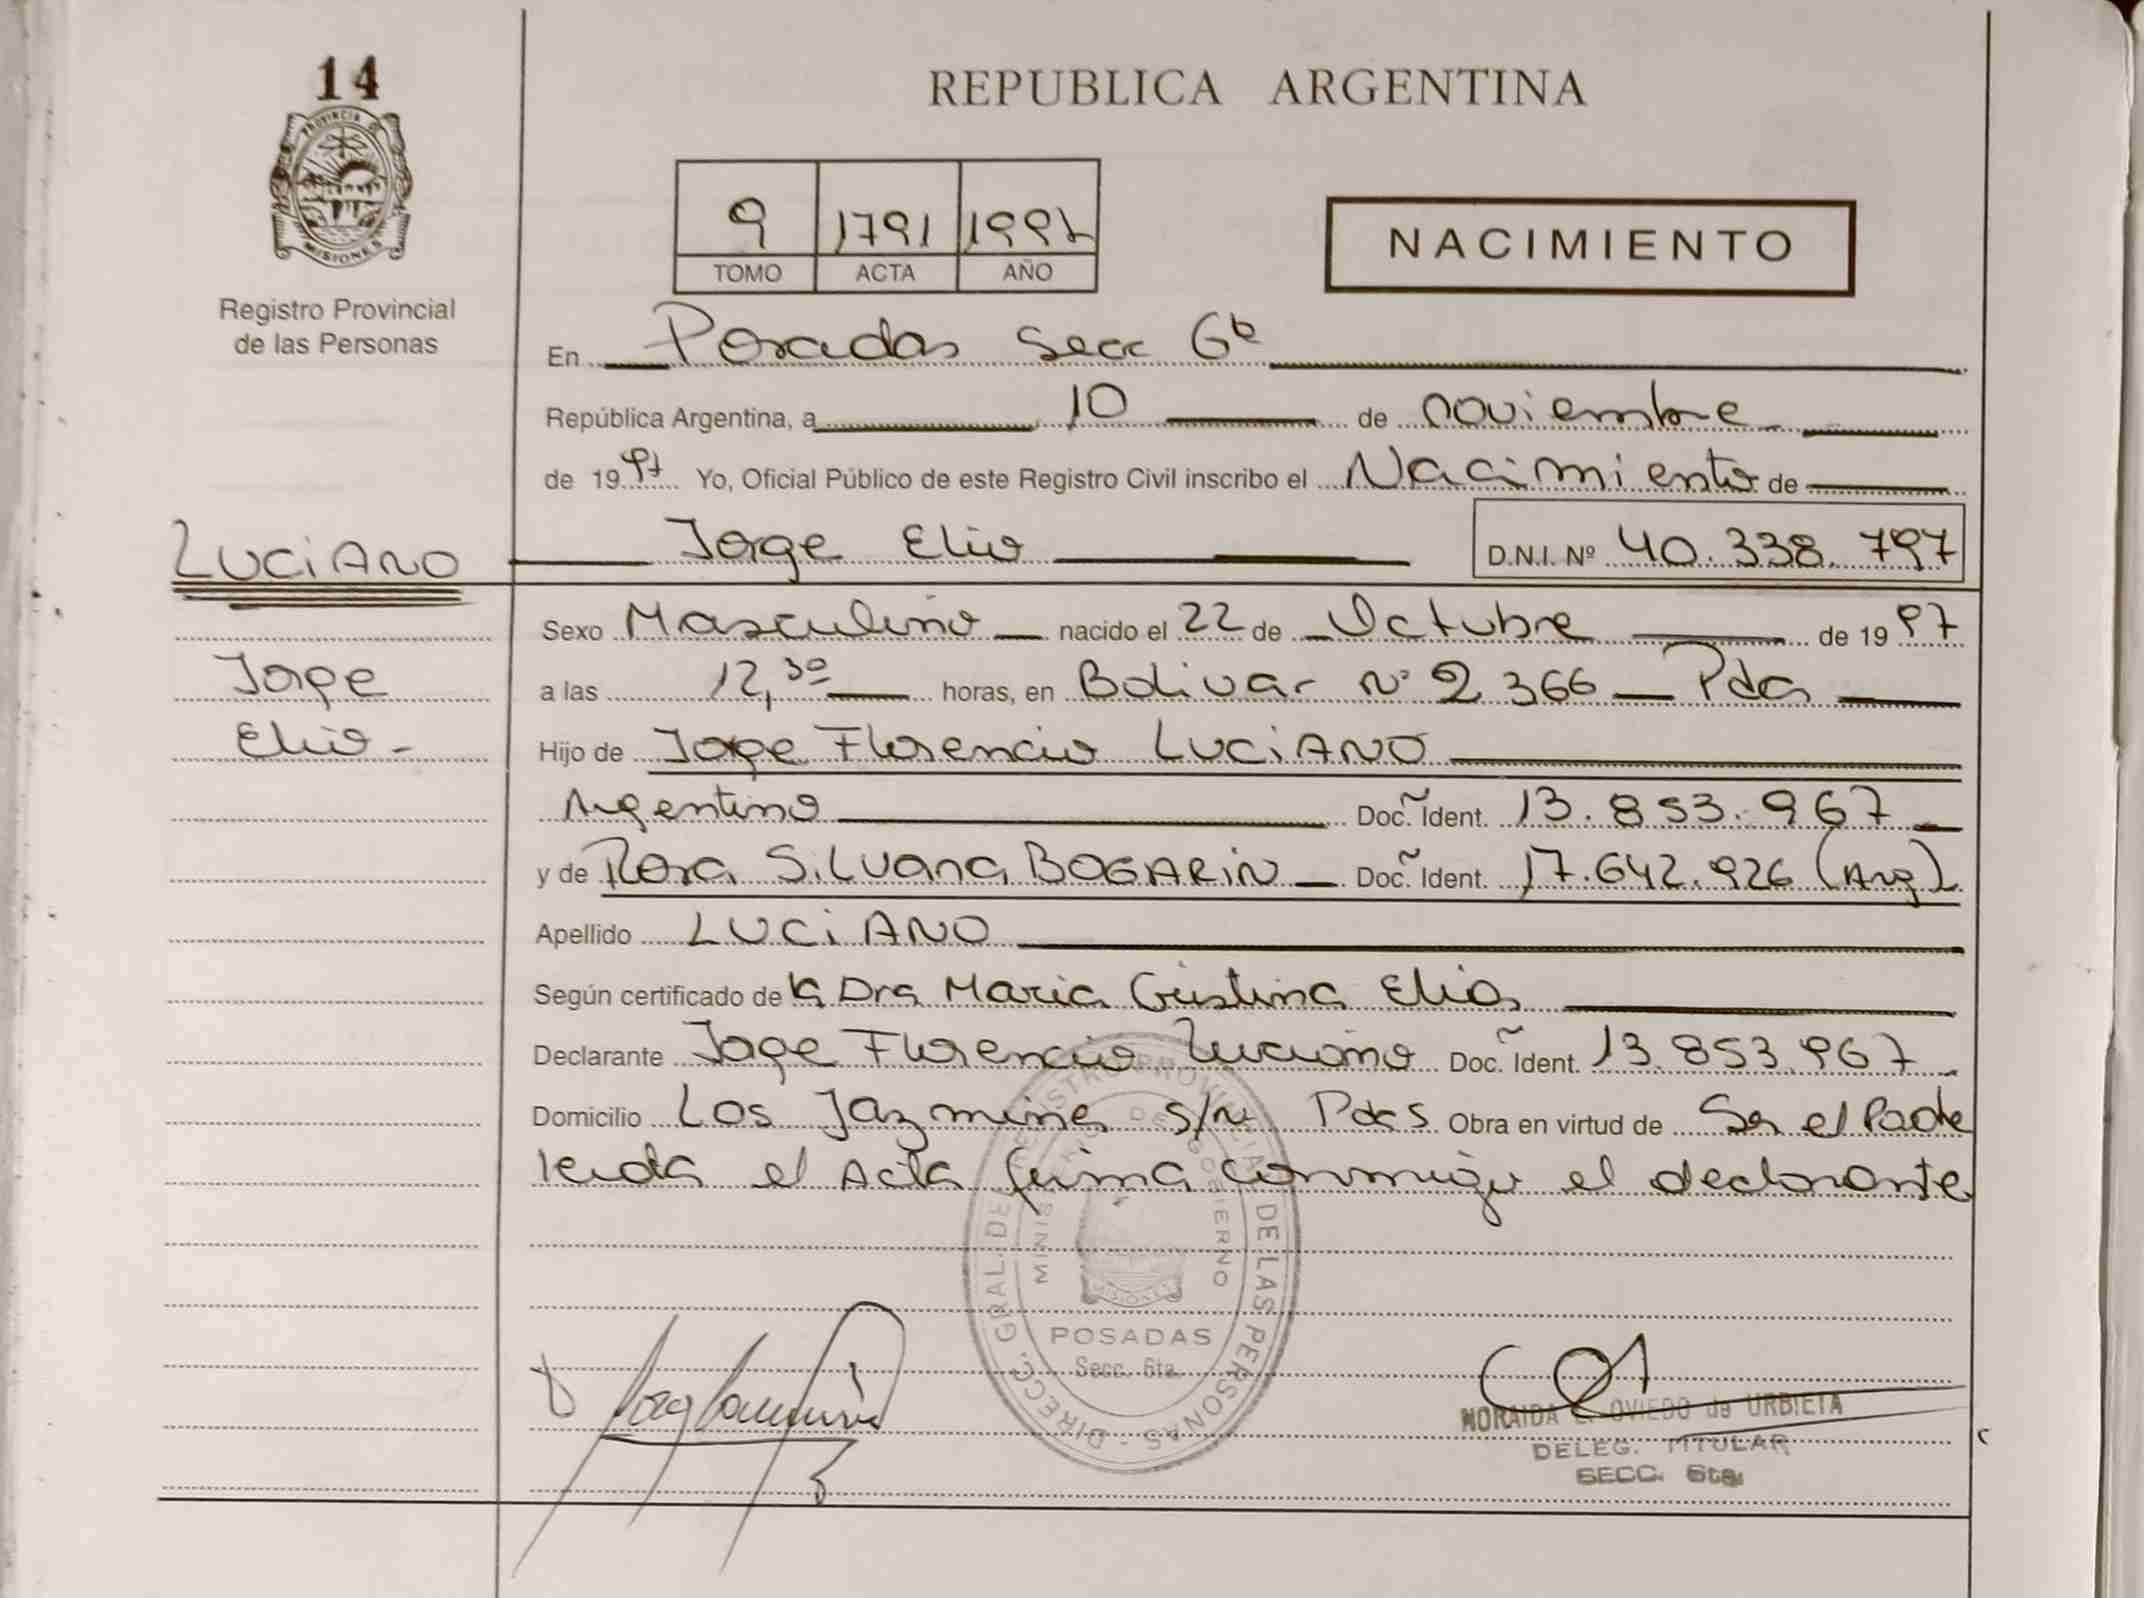 14
PROVINCIA DE
MISIONES
Registro Provincial
de las Personas
REPUBLICA ARGENTINA
9 1791 1997
TOMO ACTA AÑO
NACIMIENTO
En Posadas Secc 6ta
República Argentina, a 10 de noviembre
de 1997 Yo, Oficial Público de este Registro Civil inscribo el Nacimiento de
LUCIANO
Jorge Elio D.N.I. Nº 40.338.797
Jorge
Elio-
Sexo Masculino nacido el 22 de Octubre de 1997
a las 12,30 horas, en Bolivar Nº 2366 Pdas
Hijo de Jorge Florencio LUCIANO
Argentino Doc. Ident. 13.853.967
y de Rosa Silvana BOGARIN Doc. Ident. 17.642.926 (Arg)
Apellido LUCIANO
Según certificado de la Dra Maria Cristina Elias
Declarante Jorge Florencio Luciano Doc. Ident. 13.853.967
Domicilio Los Jazmines s/n Pdas Obra en virtud de Ser el Padre
leida el Acta firma conmigo el declarante
DIRECC. GRAL. DEL REGISTRO PROVINCIAL DE LAS PERSONAS -
MINISTERIO DE GOBIERNO
MISIONES
POSADAS
Secc. 6ta.
NORAIDA E. OVIEDO de URBIETA
DELEG. TITULAR
SECC. 6ta